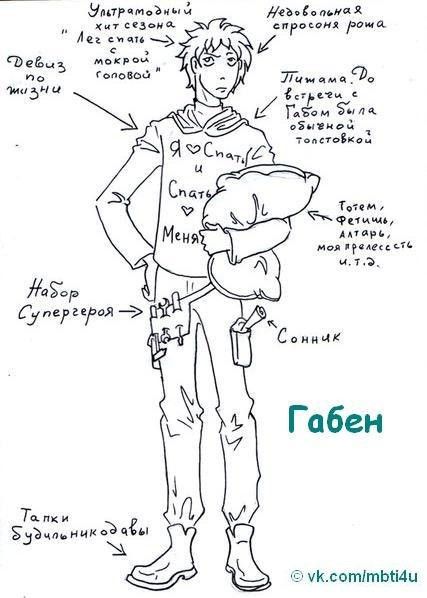 Ультрамодный
хит сезона
"Лег спать
с
мокрой
головой"
Недовольная
спросоня роша
Девиз
по
жизни
Пижама. До
встречи с
Габом была
обычной
толстовкой
Я ♡ Спать
и
Спать
♡
Меня
Тотем,
Фетишь,
Алтарь,
моя прелессть
и.т.д.
Набор
Супергероя
Сонник
Габен
Тапки
будильникодавы
© vk.com/mbti4u